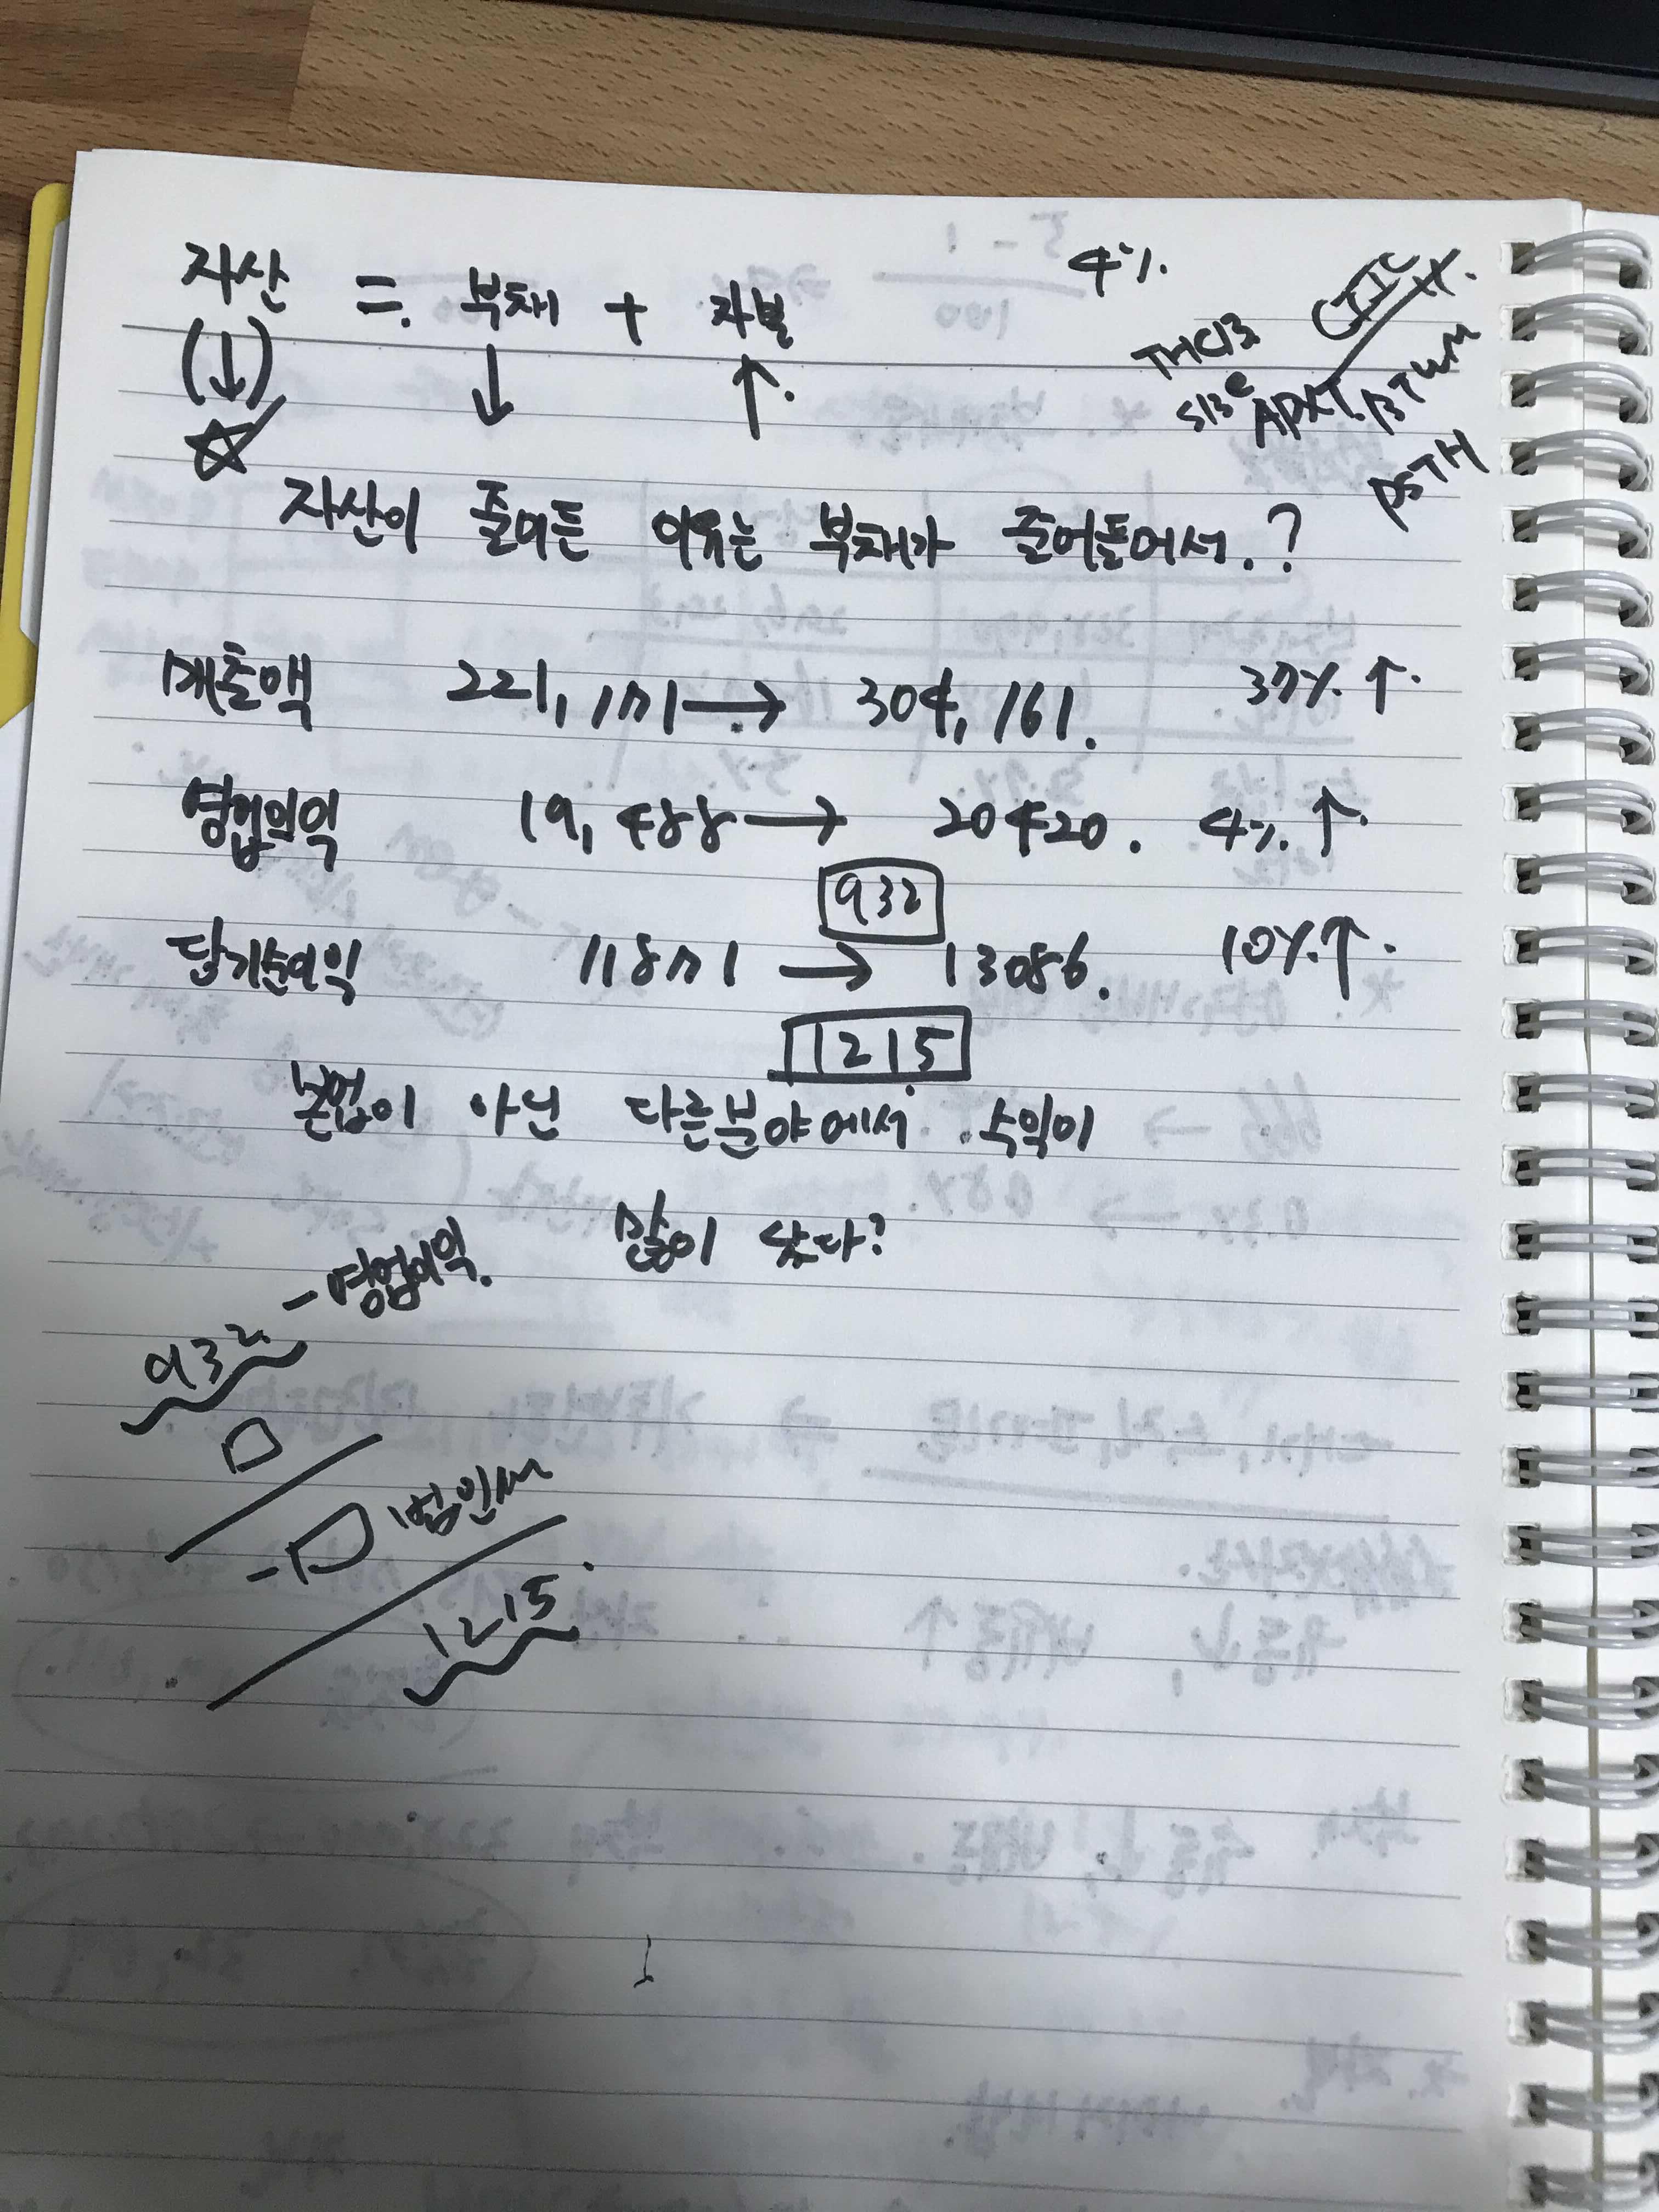 자산 = 부채 + 자본 4%
(↓) ↓ ↑
THCB CTIC
SIBE APXT BTWN
PSTH
자산이 줄어든 이유는 부채가 줄어들어서.?
매출액 221,171 → 304,161. 37% ↑.
영업이익 19,488 → 20420. 4% ↑.
932
당기순이익 11871 → 13086. 10% ↑.
1215
본업이 아닌 다른분야에서 수익이
많이 났다?
932 - 영업이익.
- 법인세
1215